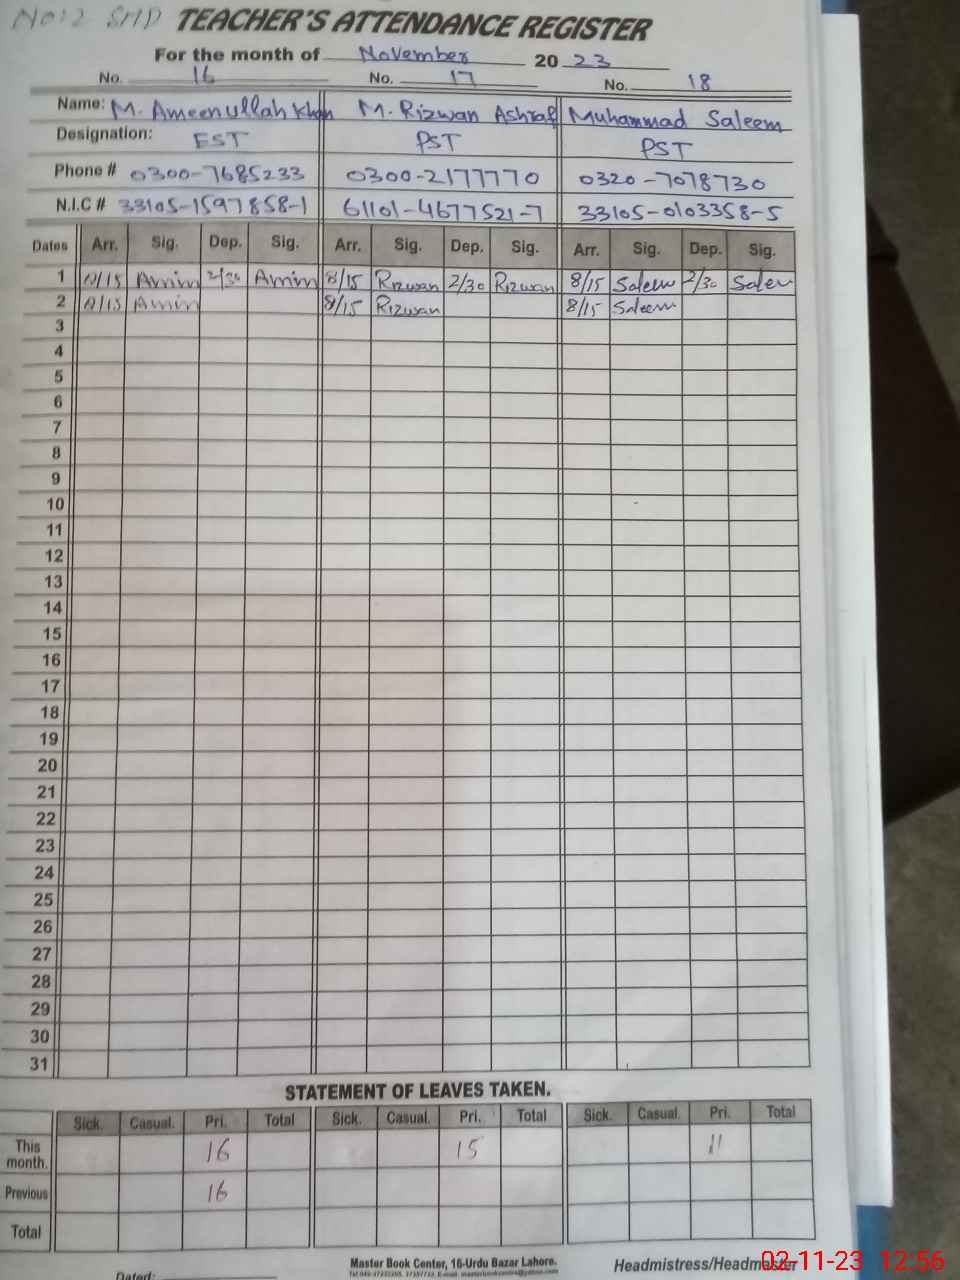 No: 2 SHD TEACHER'S ATTENDANCE REGISTER
For the month of November 2023
No. 16 No. 17 No. 18
Name: M. Ameenullah Khan M. Rizwan Ashraf Muhammad Saleem
Designation: EST PST PST
Phone # 0300-7685233 0300-2177770 0320-7078730
N.I.C # 33105-1597858-1 61101-4677521-7 33105-0103358-5
Dates Arr. Sig. Dep. Sig. Arr. Sig. Dep. Sig. Arr. Sig. Dep. Sig.
1 8/15 Amin 2/30 Amin 8/15 Rizwan 2/30 Rizwan 8/15 Saleem 2/30 Saleem
2 8/15 Amin 8/15 Rizwan 8/15 Saleem
3
4
5
6
7
8
9
10
11
12
13
14
15
16
17
18
19
20
21
22
23
24
25
26
27
28
29
30
31
STATEMENT OF LEAVES TAKEN.
Sick. Casual. Pri. Total Sick. Casual. Pri. Total Sick. Casual. Pri. Total
This month. 16 15 11
Previous 16
Total
Master Book Center, 16-Urdu Bazar Lahore.
Headmistress/Headmaster
Dated:
02-11-23 12:56